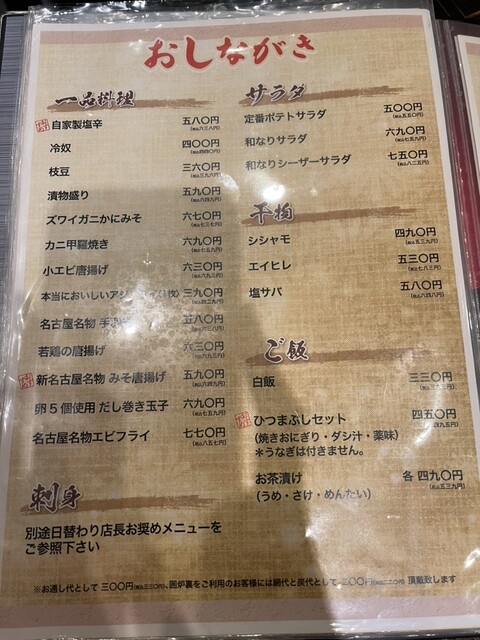 おしながき
一品料理
自家製塩辛 五八〇円
(税込六三八円)
冷奴 四〇〇円
(税込四四〇円)
枝豆 三六〇円
(税込三九六円)
漬物盛り 五九〇円
(税込六四九円)
ズワイガニかにみそ 六七〇円
(税込七三七円)
カニ甲羅焼き 六九〇円
(税込七五九円)
小エビ唐揚げ 六三〇円
(税込六九三円)
本当においしいアジ 三九〇円
(税込四二九円)
名古屋名物 手羽 五八〇円
(税込六三八円)
若鶏の唐揚げ 六三〇円
(税込六九三円)
新名古屋名物 みそ唐揚げ 五九〇円
(税込六四九円)
卵5個使用 だし巻き玉子 六九〇円
(税込七五九円)
名古屋名物エビフライ 七七〇円
(税込八四七円)
刺身
別途日替わり店長お奨めメニューを
ご参照下さい
サラダ
定番ポテトサラダ 五〇〇円
(税込五五〇円)
和なりサラダ 六九〇円
(税込七五九円)
和なりシーザーサラダ 七五〇円
(税込八二五円)
干物
シシャモ 四九〇円
(税込五三九円)
エイヒレ 五三〇円
塩サバ 五八〇円
ご飯
白飯 三三〇円
ひつまぶしセット 四五〇円
(税込四九五円)
(焼きおにぎり・ダシ汁・薬味)
*うなぎは付きません。
お茶漬け 各 四九〇円
(税込五三九円)
(うめ・さけ・めんたい)
※お通し代として 三〇〇円(税込三三〇円)、囲炉裏をご利用のお客様には網代と炭代として 二〇〇円(税込二二〇円) 頂戴致します